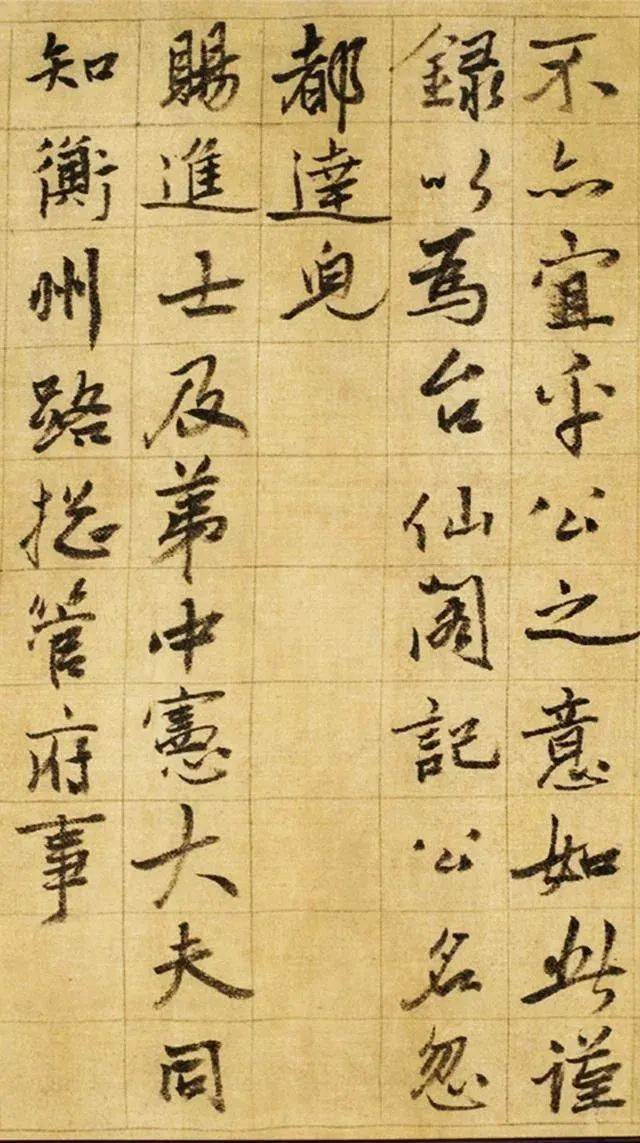 不亦宜乎公之意如此谨
録以為台仙閣記公名忽
都達皃
賜進士及弟中憲大夫同
知衡州路揔管府事